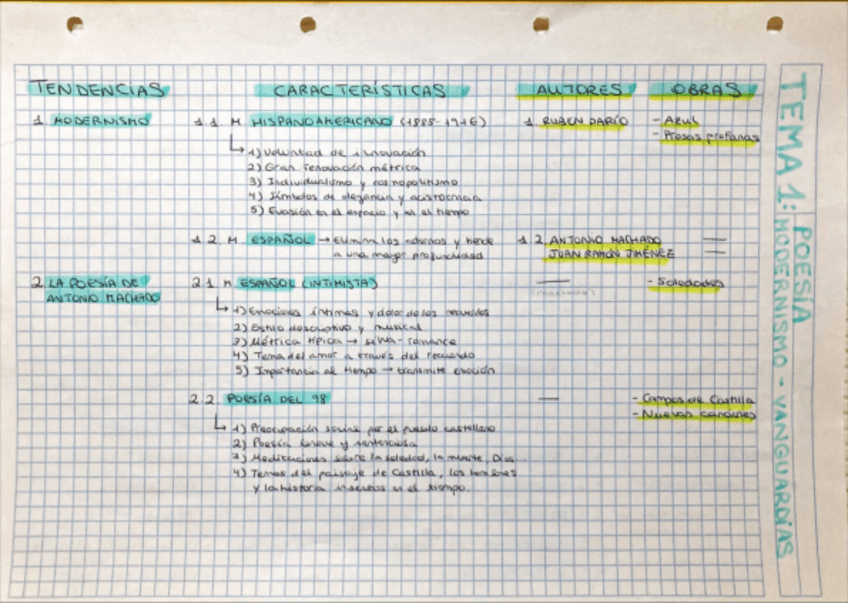 TENDENCIAS CARACTERÍSTICAS AUTORES OBRAS
1 MODERNISMO 1.1. M. HISPANOAMERICANO (1885-1916) 1. RUBEN DARÍO - Azul
- Prosas profanas
1) Voluntad de innovación
2) Gran renovación métrica
3) Individualismo y cosmopolitismo
4) Símbolos de elegancia y aristocracia
5) Evasión en el espacio y en el tiempo
1.2. M. ESPAÑOL → Elimina los adornos y tiende 1.2. ANTONIO MACHADO
a una mayor profundidad JUAN RAMÓN JIMÉNEZ
2. LA POESÍA DE 2.1. M. ESPAÑOL (INTIMISTA) - Soledades
ANTONIO MACHADO
1) Emociones íntimas y dolor de los recuerdos
2) Estilo descriptivo y musical
3) Métrica típica → silva-romance
4) Tema del amor a través del recuerdo
5) Importancia al tiempo → transmite emoción
2.2. POESÍA DEL 98 - Campos de Castilla
- Nuevas canciones
1) Preocupación social por el pueblo castellano
2) Poesía breve y sentenciosa
3) Meditaciones sobre la soledad, la muerte, Dios...
4) Temas del paisaje de Castilla, los hombres
y la historia insertos en el tiempo.
TEMA 1: POESÍA
MODERNISMO - VANGUARDIAS